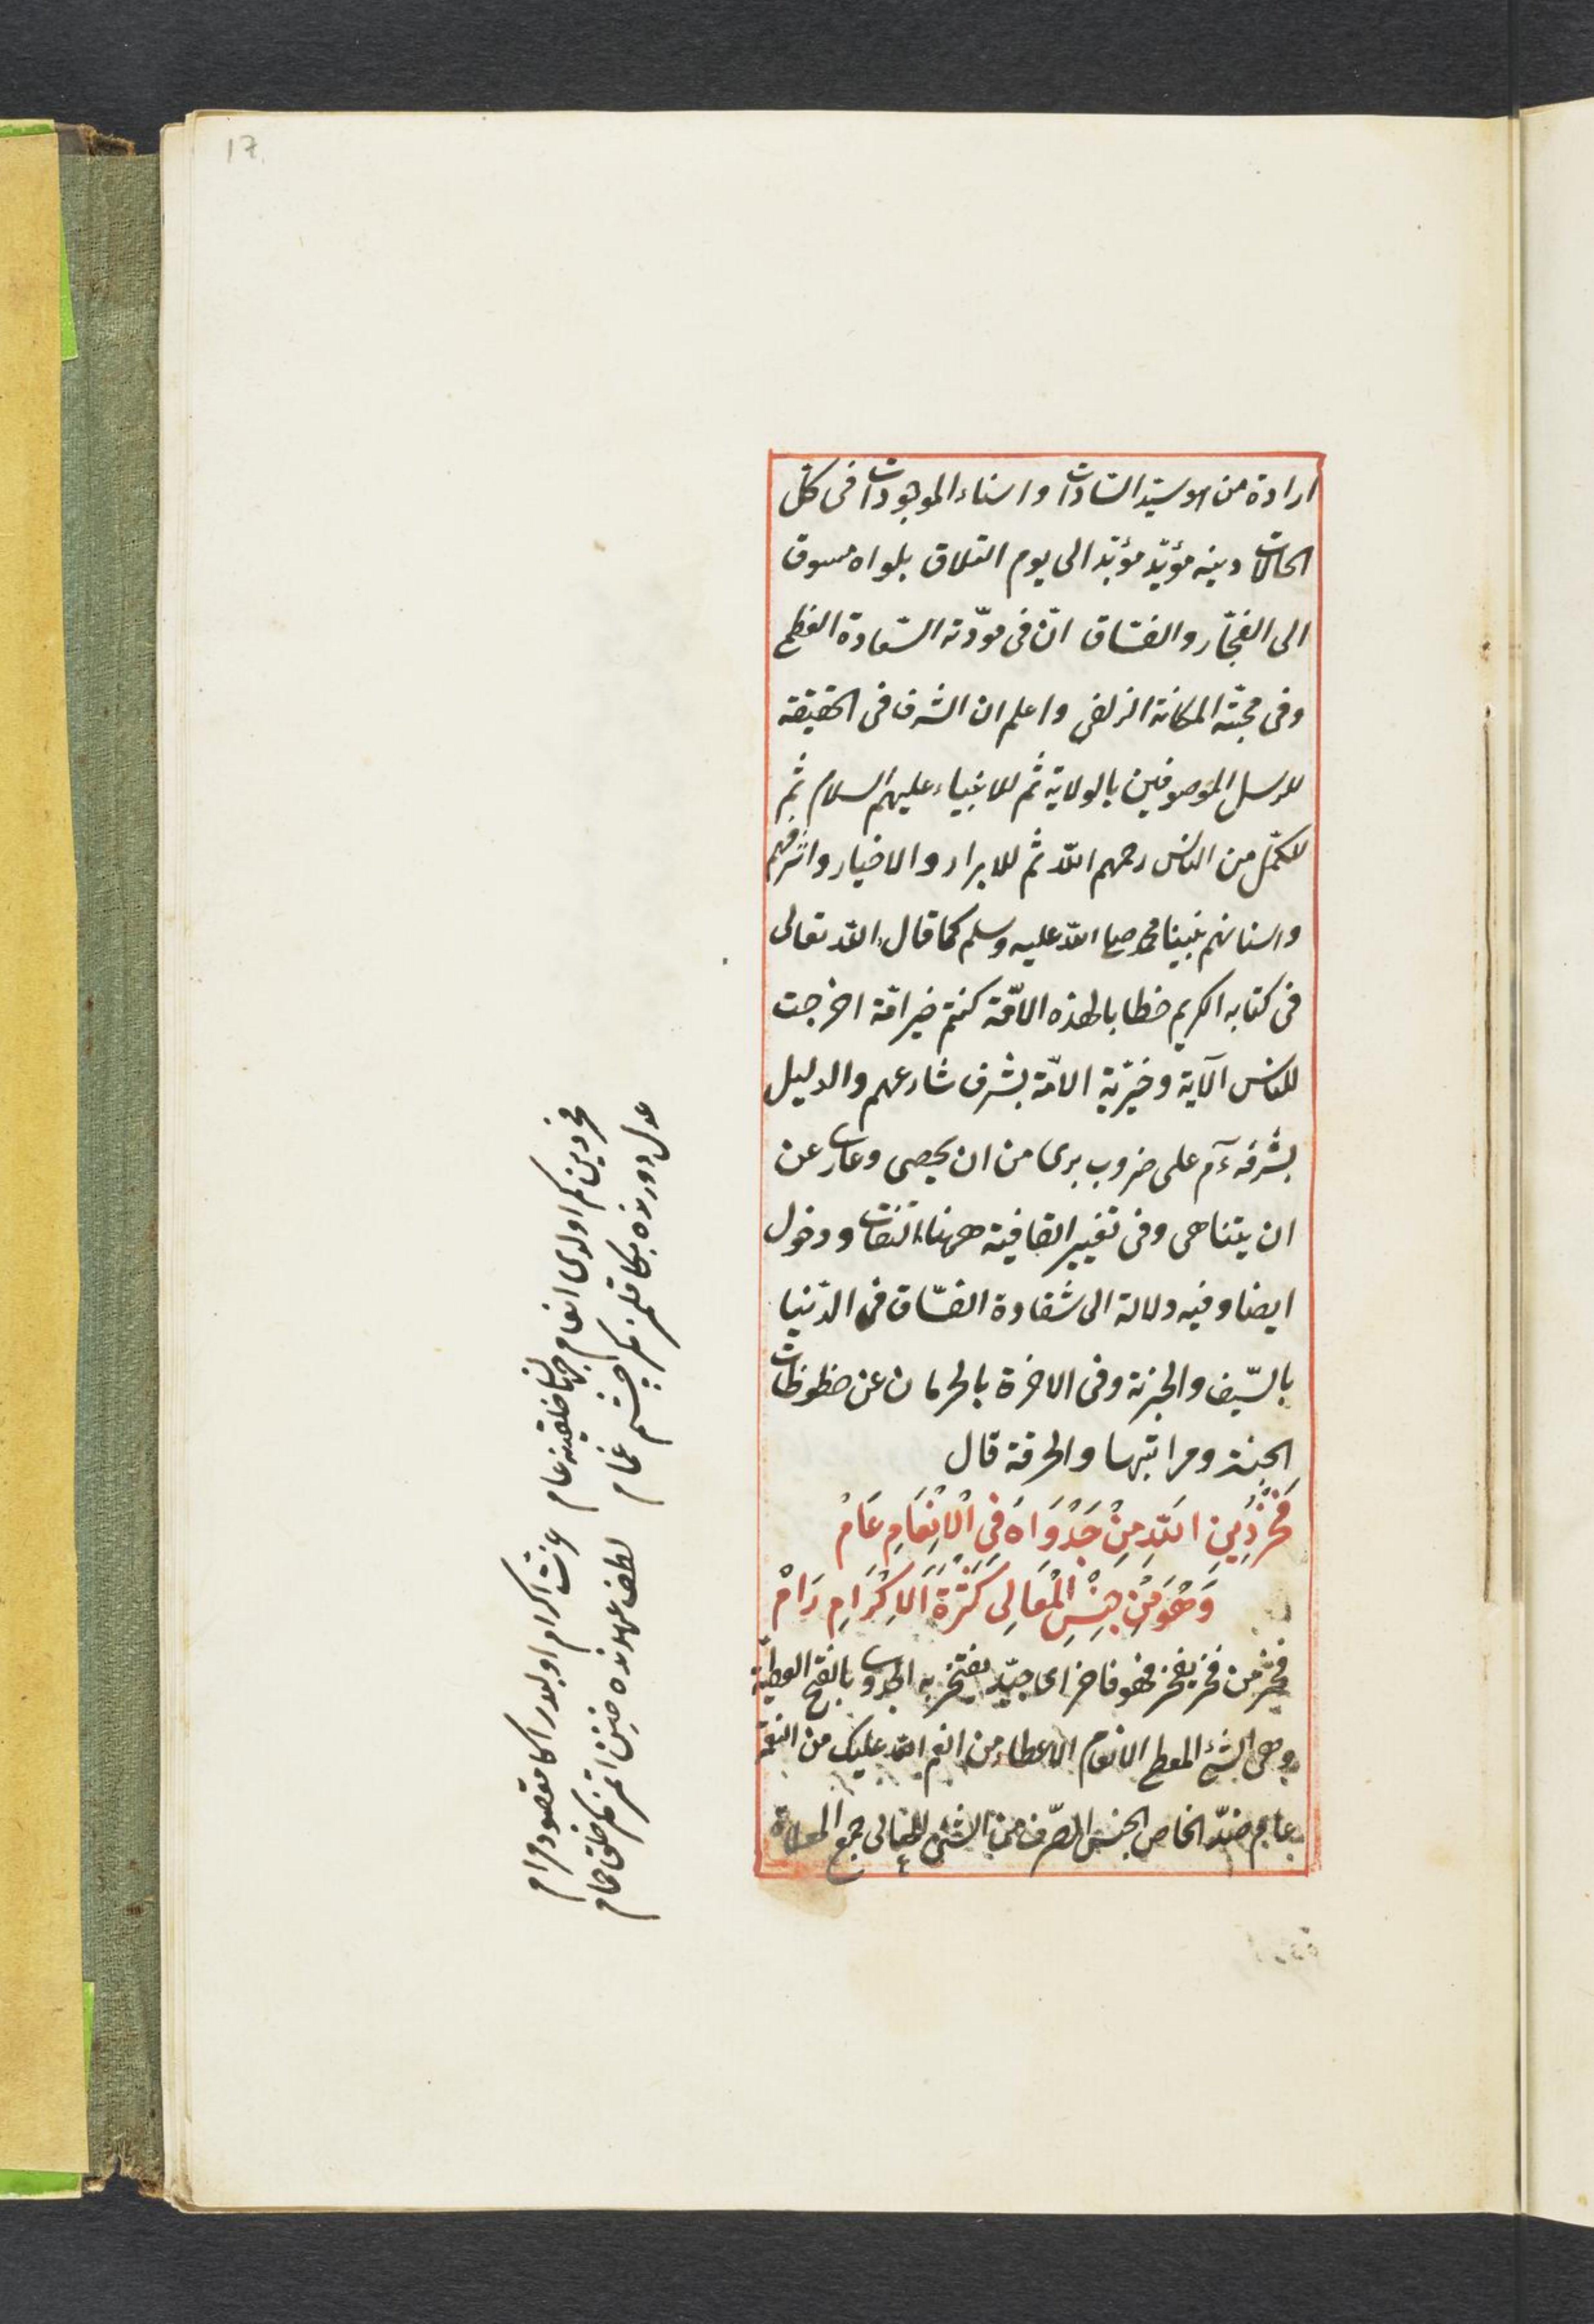 17
ارادة من الاوسيد السّادات واسناء الموجودات فى كل
الحالات دينه مؤيّد مؤبّد الى يوم التلاق بلواه مسوق
الى الفجّار والفسّاق انّ فى مودّته السّعادة العظمى
وفى محبّته المكانة الزلفى واعلم ان الشرف فى الحقيقه
للرسل الموصوفين بالولاية ثم للانبياء عليهم السلام ثم
للكمّل من الناس رحمهم الله ثم للابرار والاخيار واشرفهم
واسنانهم نبينا محمد صلى الله عليه وسلم كما قال الله تعالى
فى كتابه الكريم خطابا لهذه الامّة كنتم خير امّة اخرجت
للناس الآية وخيريّة الامّة بشرف شارعهم والدليل
بشرفه على ضروب برى من ان يحصى وعار عن
ان يتناهى وفى تغيير القافية ههنا التفات ودخول
ايضا وفيه دلالة الى شقاوة الفسّاق فى الدّنيا
بالسّيف والجزية وفى الاخرة بالحرمان عن حظوظات
الجنة ومراتبها والحرقة قال
فَخْرُ دِينِ اللّهِ مِنْ جَدْوَاهَ فِى الْاِنْعَامِ عَامْ
وَهُوَ مِنْ جِنْسِ الْمَعَالِى كَثْرَةَ الاِكْرَامِ رَامْ
فخر من فخر يفخر فهو فاخر اى جيّد يفتخر به الجدوى بالفتح العطيّة
وهى الشئ المعطى الانعام الاعطاء من انعم الله عليك من النعمة
عام ضدّ الخاص الجنس من الشئ المعالى جمع المعلاة
فخر دينكم اولدى انعام جهان خلقينه عام
عزت اكرام اولدر اكا مقصود مرام
عدل دورنده بكا قلمز اچشم غمام
لطف عهدنده حنين اتمز خلق حمام